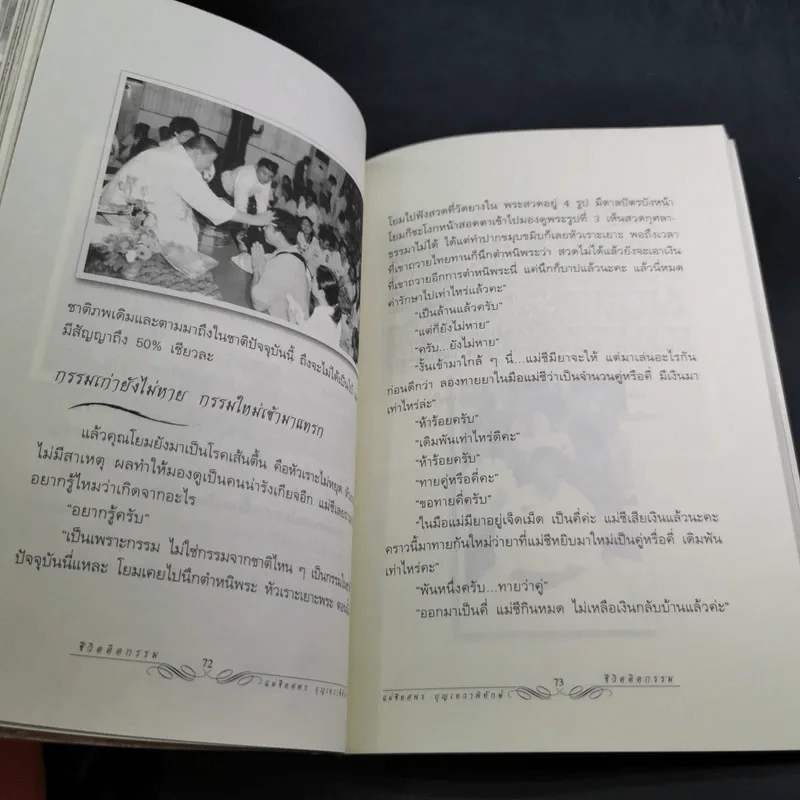 ชาติภพเดิมและตามมาถึงในชาติปัจจุบันนี้ ถึงจะไม่ได้เป็นใบ้
มีสัญญาถึง 50% เชียวละ
กรรมเก่ายังไม่หาย กรรมใหม่เข้ามาแทรก
แล้วคุณโยมยังมาเป็นโรคเส้นตื้น คือหัวเราะไม่หยุด
ไม่มีสาเหตุ ผลทำให้มองดูเป็นคนน่ารังเกียจอีก แม่ชีเลย
อยากรู้ไหมว่าเกิดจากอะไร
"อยากรู้ครับ"
"เป็นเพราะกรรม ไม่ใช่กรรมจากชาติไหน ๆ เป็นกรรมใน
ปัจจุบันนี่แหละ โยมเคยไปนึกตำหนิพระ หัวเราะเยาะพระ
ชีวิตติดกรรม
72
แม่ชีทศพร
โยมไปฟังสวดที่วัดยางใน พระสวดอยู่ 4 รูป มีตาลปัตรบังหน้า
โยมก็ชะโงกหน้าสอดตาเข้าไปมองดูพระรูปที่ 3 เห็นสวดกุศลา-
ธรรมาไม่ได้ ได้แต่ทำปากขมุบขมิบก็เลยหัวเราะเยาะ พอถึงเวลา
ที่เขาถวายไทยทานก็นึกตำหนิพระว่า สวดไม่ได้แล้วยังจะเอาเงิน
ที่เขาถวายอีกการตำหนิพระนี่ แค่นึกก็บาปแล้วนะคะ แล้วนี่หมด
ค่ารักษาไปเท่าไหร่แล้วคะ"
"เป็นล้านแล้วครับ"
"แต่ก็ยังไม่หาย"
"ครับ...ยังไม่หาย"
"งั้นเข้ามาใกล้ ๆ นี่...แม่ชีมียาจะให้ แต่มาเล่นอะไรกัน
ก่อนดีกว่า ลองทายยาในมือแม่ชีว่าเป็นจำนวนคู่หรือคี่ มีเงินมา
เท่าไหร่ล่ะ"
"ห้าร้อยครับ"
"เดิมพันเท่าไหร่ดีคะ"
"ห้าร้อยครับ"
"ทายคู่หรือคี่คะ"
"ขอทายคี่ครับ"
"ในมือแม่มียาอยู่เจ็ดเม็ด เป็นคี่ค่ะ แม่ชีเสียเงินแล้วนะคะ
คราวนี้มาทายกันใหม่ว่ายาที่แม่ชีหยิบมาใหม่เป็นคู่หรือคี่ เดิมพัน
เท่าไหร่คะ"
"พันหนึ่งครับ...ทายว่าคู่"
"ออกมาเป็นคี่ แม่ชีกินหมด ไม่เหลือเงินกลับบ้านแล้วค่ะ"
แม่ชีทศพร
73
ชีวิตติดกรรม